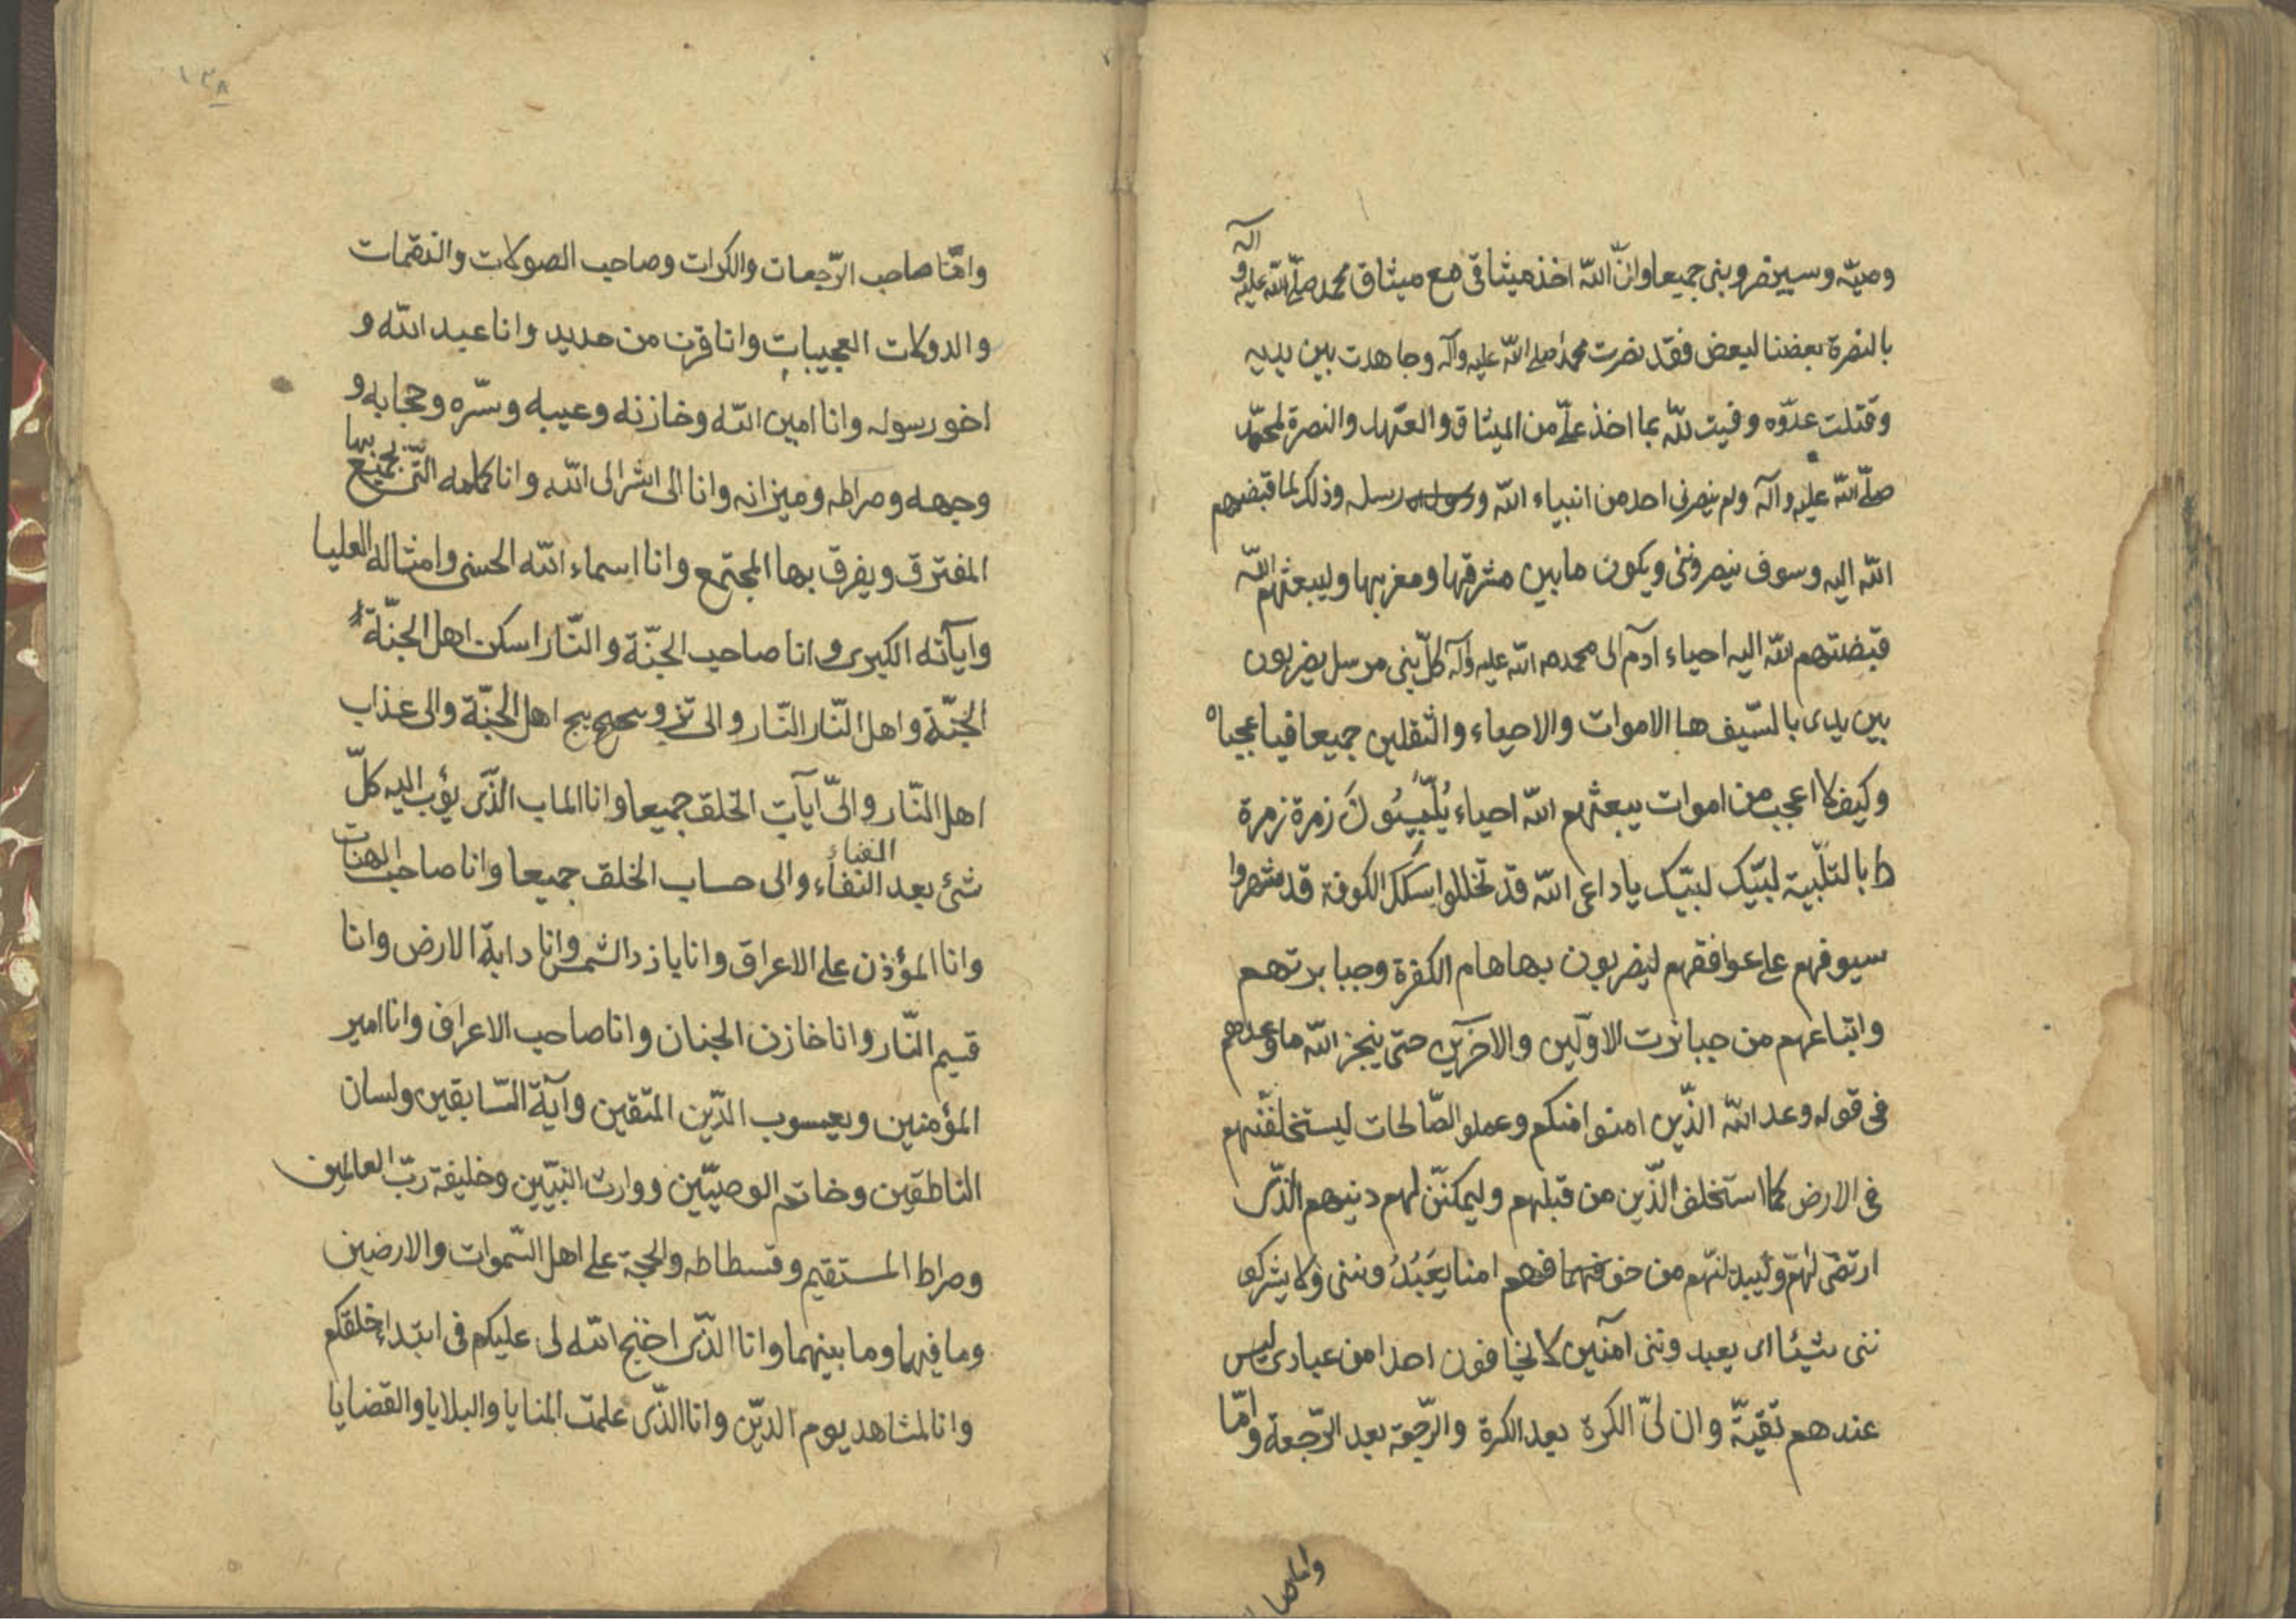 وصيّه وسينصروبنى جميعا وانّ الله اخذ ميثاقى مع ميثاق محمد صلّى الله عليه وآله
بالنصرة بعضنا لبعض فقد نصرت محمدا صلى الله عليه وآله وجاهدت بين يديه
وقتلت عدوّه وفيت لله بما اخذ علىّ من الميثاق والعهد والنصرة لمحمّد
صلّى الله عليه وآله ولم ينصرنى احد من انبياء الله ورسله وذلك لما قبضهم
الله اليه وسوف ينصروننى ويكون مابين مشرقها ومغربها وليبعثهم الله
قبضتهم الله اليه احياء آدم الى محمد صه الله عليه وآله كلّ بنى مرسل يضربون
بين يدى بالسّيف هام الاموات والاحياء والثقلين جميعا فيا عجباه
وكيف لا اعجب من اموات يبعثهم الله احياء يُلَبّونَ زمرة زمرة
ط بالتلّبية لبّيك لبّيك ياداعى الله قد تخللوا سكك الكوفة قد شهروا
سيوفهم على عواققهم ليضربون بها هام الكفرة وجبابرتهم
واتباعهم من جبابرت الاوّلين والآخرين حتى ينجز الله ما وعدهم
فى قوله وعد الله الذّين امنوا منكم وعملو الصّالحات ليستخلفنّهم
فى الارض كما استخلف الذّين من قبلهم وليمكننّ لهم دينهم الذّى
ارتضى لهم وليبدلنّهم من خوفهم امنا يَعْبُدُ وننى ولا يشركو
ننى شيئا اى يعبد وننى آمنين لا يخافون احدا من عبادى ليس
عندهم تقيّة وان لىّ الكرة بعد الكرة والرّجعة بعد الرّجعة وامّا
واناصا
١٣٨
وامّنا صاحب الرّجعات والكرات وصاحب الصولات والنقمات
والدولات العجيبات وانا قرن من حديد وانا عبد الله و
اخو رسوله وانا امين الله وخازنه وعيبه وسّره وحجابه و
وجهه وصراطه وميزانه وانا الى اشر الى الله وانا كلمه التّى يجمع بها
المفترق ويفرق بها المجتمع وانا اسماء الله الحسنى وامثاله العليا
وايآته الكبرى وانا صاحب الجنّة والنّار اسكن اهل الجنّة
الجنّة واهل النّار النّار والى تزويج اهل الجنّة والى عذاب
اهل النّار والىّ ايآت الخلق جميعا وانا الماب الذّى يؤب اليه كلّ
شئ بعد الفناء والى حساب الخلق جميعا وانا صاحب الهنات
وانا المؤذن على الاعراق وانا ياذ دالشمس وانا دابة الارض وانا
قسيم النّار وانا خازن الجنان وانا صاحب الاعراف وانا امير
المؤمنين ويعسوب الدّين المتقين وآية السّابقين ولسان
الناطقين وخاتم الوصيّين ووارث النبيّين وخليفة ربّ العالمين
وصراط المستقيم وقسطاطه والحجة على اهل السّموات والارضين
وما فيهما وما بينهما وانا الذّى احتج الله لى عليكم فى ابتداء خلقكم
وانا لمشاهد يوم الدّين وانا الذّى علمت المنايا والبلايا والقضايا